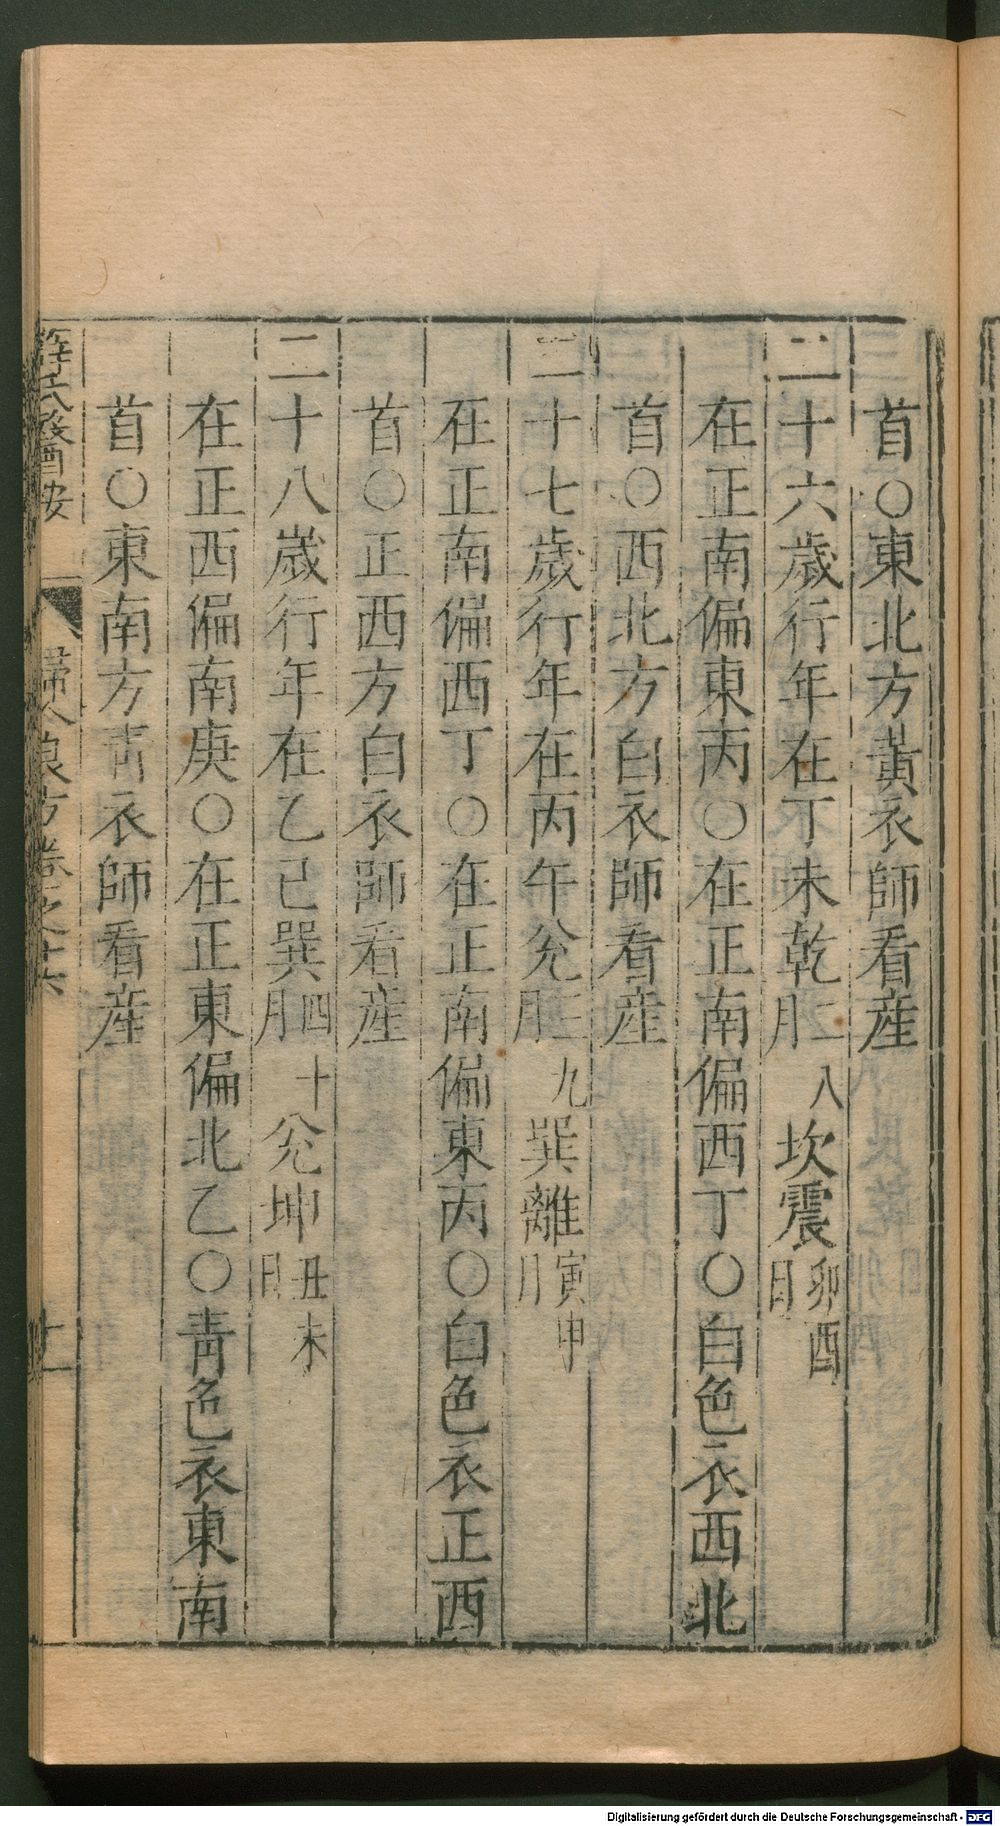 首○東北方黃衣師看産
二十六歲行年在丁未乾二八月坎震卯酉日
在正南偏東丙○在正南偏西丁○白色衣西北
首○西北方白衣師看産
二十七歲行年在丙午兊三九月巽離寅申日
在正南偏西丁○在正南偏東丙○白色衣正西
首○正西方白衣師看産
二十八歲行年在乙巳巽四十月兊坤丑未日
在正西偏南庚○在正東偏北乙○青色衣東南
首○東南方青衣師看産
婦人良方卷之十六
Digitalisierung gefördert durch die Deutsche Forschungsgemeinschaft - DFG